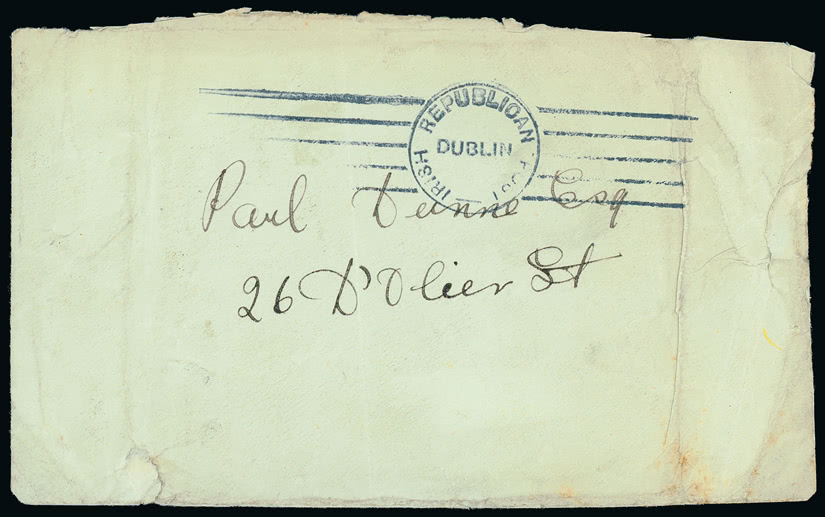 IRISH REPUBLICAN POST
DUBLIN
Paul Dunne Esq
26 D'Olier St